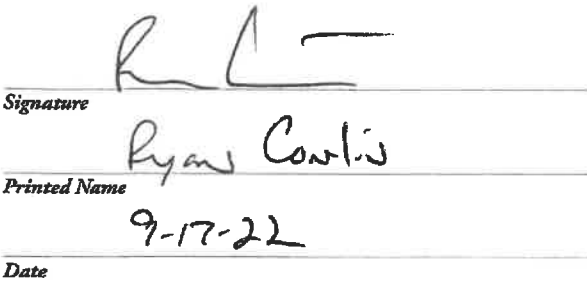 Signature
Ryan Conlin
Printed Name
9-17-22
Date